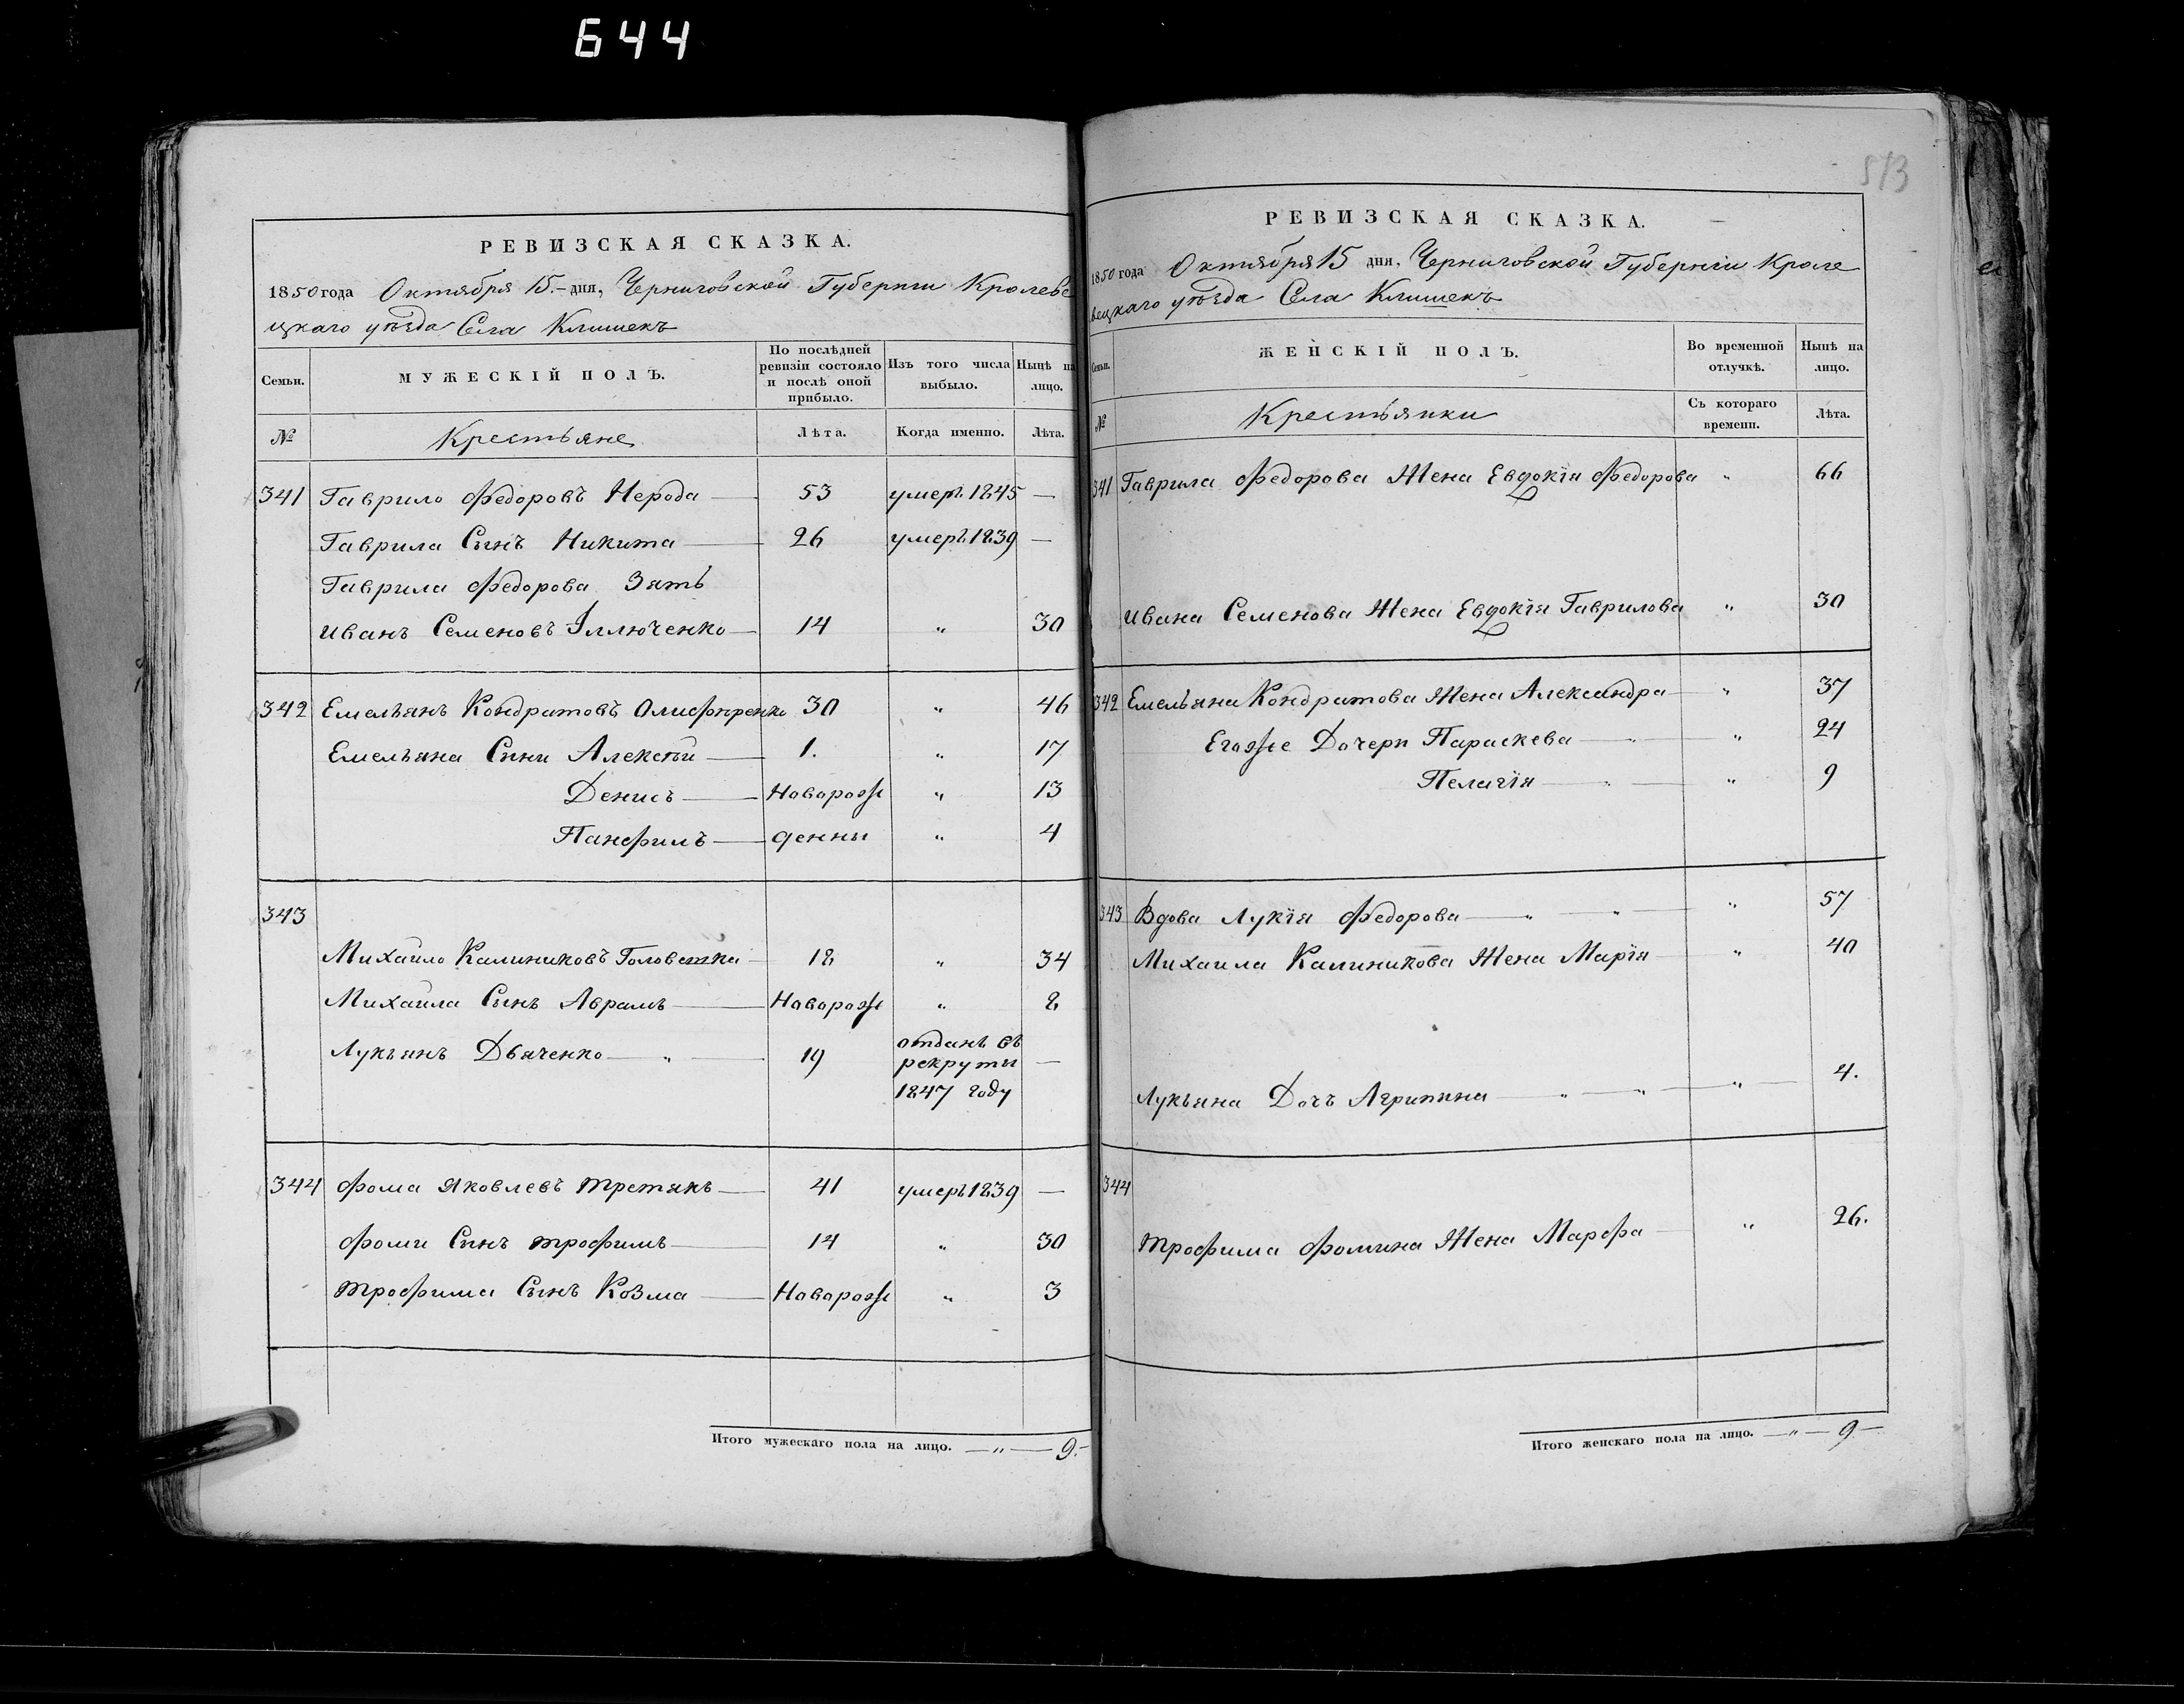 644
РЕВИЗСКАЯ СКАЗКА.
1850 года Октября 15.– дня, Черниговской Губернiи Кролеве
цкаго уѣзда Села Клишекъ
Семьи.
МУЖЕСКІЙ ПОЛЪ.
По послѣдней ревизіи состояло и послѣ оной прибыло.
Изъ того числа выбыло.
Нынѣ на лицо.
№ Крестьяне Лѣта. Когда именно. Лѣта.
341 Гаврило Федоровъ Нерода — 53 умеръ 1845 —
Гаврила Сынъ Никита — 26 умеръ 1839 —
Гаврила Федорова Зять
Иванъ Семеновъ Iллюченко — 14 " 30
342 Емельянъ Кондратовъ Олифѣренко 30 " 46
Емельяна Сыни Алексѣй — 1. " 17
Денисъ — Новорож " 13
Панфилъ — денны " 4
343
Михайло Калиниковъ Головатка 18 " 34
Михайла Сынъ Аврамъ — Новорож " 8
Лукьянъ Дьяченко — " — 19 отданъ въ —
рекруты
1847 году
344 Фома Яковлевъ Третякъ — 41 умеръ 1839 —
Фоми Сынъ Трофимъ — 14 " 30
Трофима Сынъ Козма — Новорож " 3
Итого мужескаго пола на лицо. — " — 9.–
513
РЕВИЗСКАЯ СКАЗКА.
1850 года Октября 15 дня, Черниговской Губернiи Кроле
вецкаго уѣзда Села Клишекъ
Семьи.
ЖЕНСКІЙ ПОЛЪ.
Во временной отлучкѣ.
Нынѣ на лицо.
№ Крестьянки Съ котораго времени. Лѣта.
341 Гаврила Федорова Жена Евдокія Федорова " 66
Ивана Семенова Жена Евдокія Гаврилова " 30
342 Емельяна Кондратова Жена Александра " 37
Егоже Дочери Параскева — " — " 24
Пелагія — " — " 9
343 Вдова Лукія Федорова — " — " — " 57
Михаила Калиникова Жена Марія — " 40
Лукьяна Дочъ Агрипина — " — " — " — 4.
344
Трофима Фомина Жена Марфа — " 26.
Итого женскаго пола на лицо. — " — 9 —